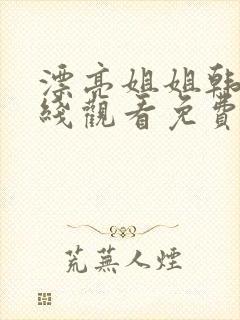 漂亮姐姐韩
线觀看免費
荒蕪人煙